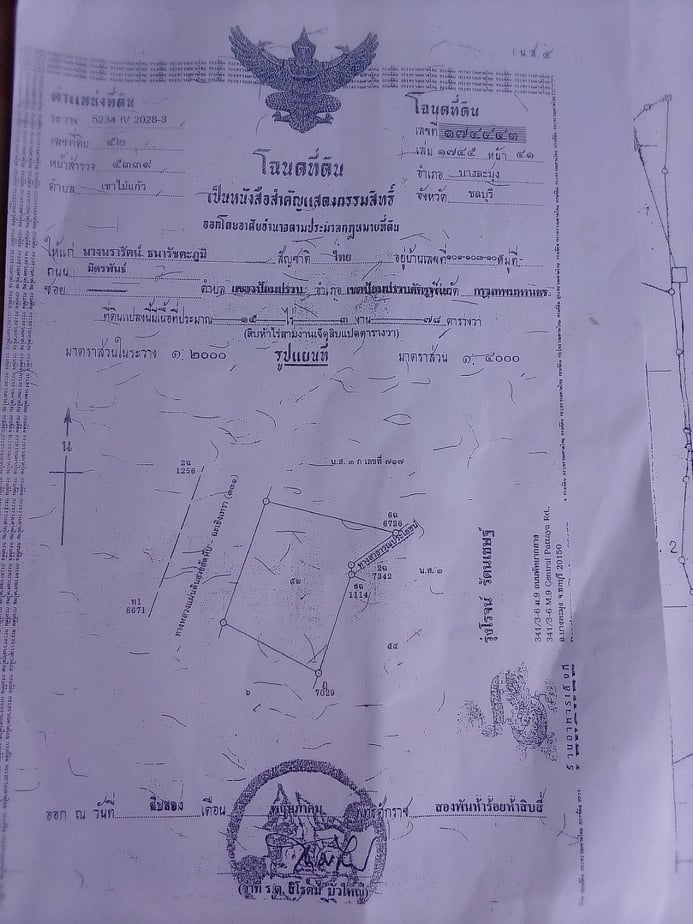 (น ส ๔
ตำแหน่งที่ดิน
ระวาง 5234 IV 2028-3
เลขที่ดิน ๕๒
หน้าสำรวจ ๕๓๓๙
ตำบล เขาไม้แก้ว
โฉนดที่ดิน
เลขที่ ๑๗๔๔๔๓
เล่ม ๑๗๔๕ หน้า ๔๑
อำเภอ บางละมุง
จังหวัด ชลบุรี
โฉนดที่ดิน
เป็นหนังสือสำคัญแสดงกรรมสิทธิ์
ออกโดยอาศัยอำนาจตามประมวลกฎหมายที่ดิน
ให้แก่ นางนรารัตน์ ธนารัชตะภูมิ สัญชาติ ไทย อยู่บ้านเลขที่ ๑๐๑-๑๐๓-๑๐ หมู่ที่ -
ถนน มิตรพันธ์
ซอย ตำบล แขวงป้อมปราบ อำเภอ เขตป้อมปราบศัตรูพ่าย จังหวัด กรุงเทพมหานคร
ที่ดินแปลงนี้มีเนื้อที่ประมาณ ๑๕ ไร่ ๓ งาน ๗๘ ตารางวา
(สิบห้าไร่สามงานเจ็ดสิบแปดตารางวา)
มาตราส่วนในระวาง ๑: ๒๐๐๐ รูปแผนที่ มาตราส่วน ๑: ๔๐๐๐
น
2ฉ
1256
ท1
8671
ทางหลวงแผ่นดินสายสัตหีบ - ฉะเชิงเทรา (๓๓๑)
น.ส. ๓ ก เลขที่ ๗๑๗
6ฉ
6726
ทางสาธารณประโยชน์
2ฉ
7342
6ฉ
1114
น.ส. ๓
๕๒
๕๔
7029
รุ่งโรจน์ รัตนเศรษฐ์
341/3-6 ม.9 ถนนพัทยากลาง
341/3-6 M.9 Central Pattaya Rd.
อ.บางละมุง จ.ชลบุรี 20150
2
ออก ณ วันที่ สิบสอง เดือน พฤษภาคม พุทธศักราช สองพันห้าร้อยห้าสิบสี่